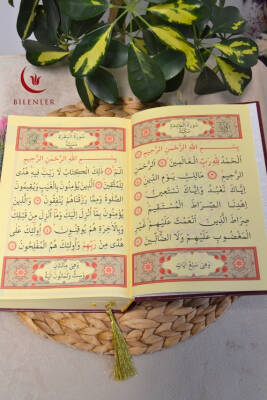 BILENLER
سُورَةُ الْفَاتِحَةِ
بِسْمِ اللّٰهِ الرَّحْمٰنِ الرَّحِيمِ
اَلْحَمْدُ لِلّٰهِ رَبِّ الْعَالَمِينَ اَلرَّحْمٰنِ
الرَّحِيمِ مَالِكِ يَوْمِ الدِّينِ
اِيَّاكَ نَعْبُدُ وَاِيَّاكَ نَسْتَعِينُ
اِهْدِنَا الصِّرَاطَ الْمُسْتَقِيمَ
صِرَاطَ الَّذِينَ اَنْعَمْتَ عَلَيْهِمْ غَيْرِ
الْمَغْضُوبِ عَلَيْهِمْ وَلَا الضَّالِّينَ
وَهِيَ سَبْعُ اٰيَاتٍ
سُورَةُ الْبَقَرَةِ
بِسْمِ اللّٰهِ الرَّحْمٰنِ الرَّحِيمِ
الٓمٓ ذٰلِكَ الْكِتَابُ لَا رَيْبَ فِيهِ هُدًى
لِلْمُتَّقِينَ اَلَّذِينَ يُؤْمِنُونَ بِالْغَيْبِ وَيُقِيمُونَ
الصَّلٰوةَ وَمِمَّا رَزَقْنَاهُمْ يُنْفِقُونَ وَالَّذِينَ
يُؤْمِنُونَ بِمَا اُنْزِلَ اِلَيْكَ وَمَا اُنْزِلَ مِنْ قَبْلِكَ
وَبِالْاٰخِرَةِ هُمْ يُوقِنُونَ اُولٰئِكَ عَلٰى
هُدًى مِنْ رَبِّهِمْ وَاُولٰئِكَ هُمُ الْمُفْلِحُونَ
وَهِيَ مِائَتَانِ
وَسِتٌّ وَثَمَانُونَ اٰيَةً